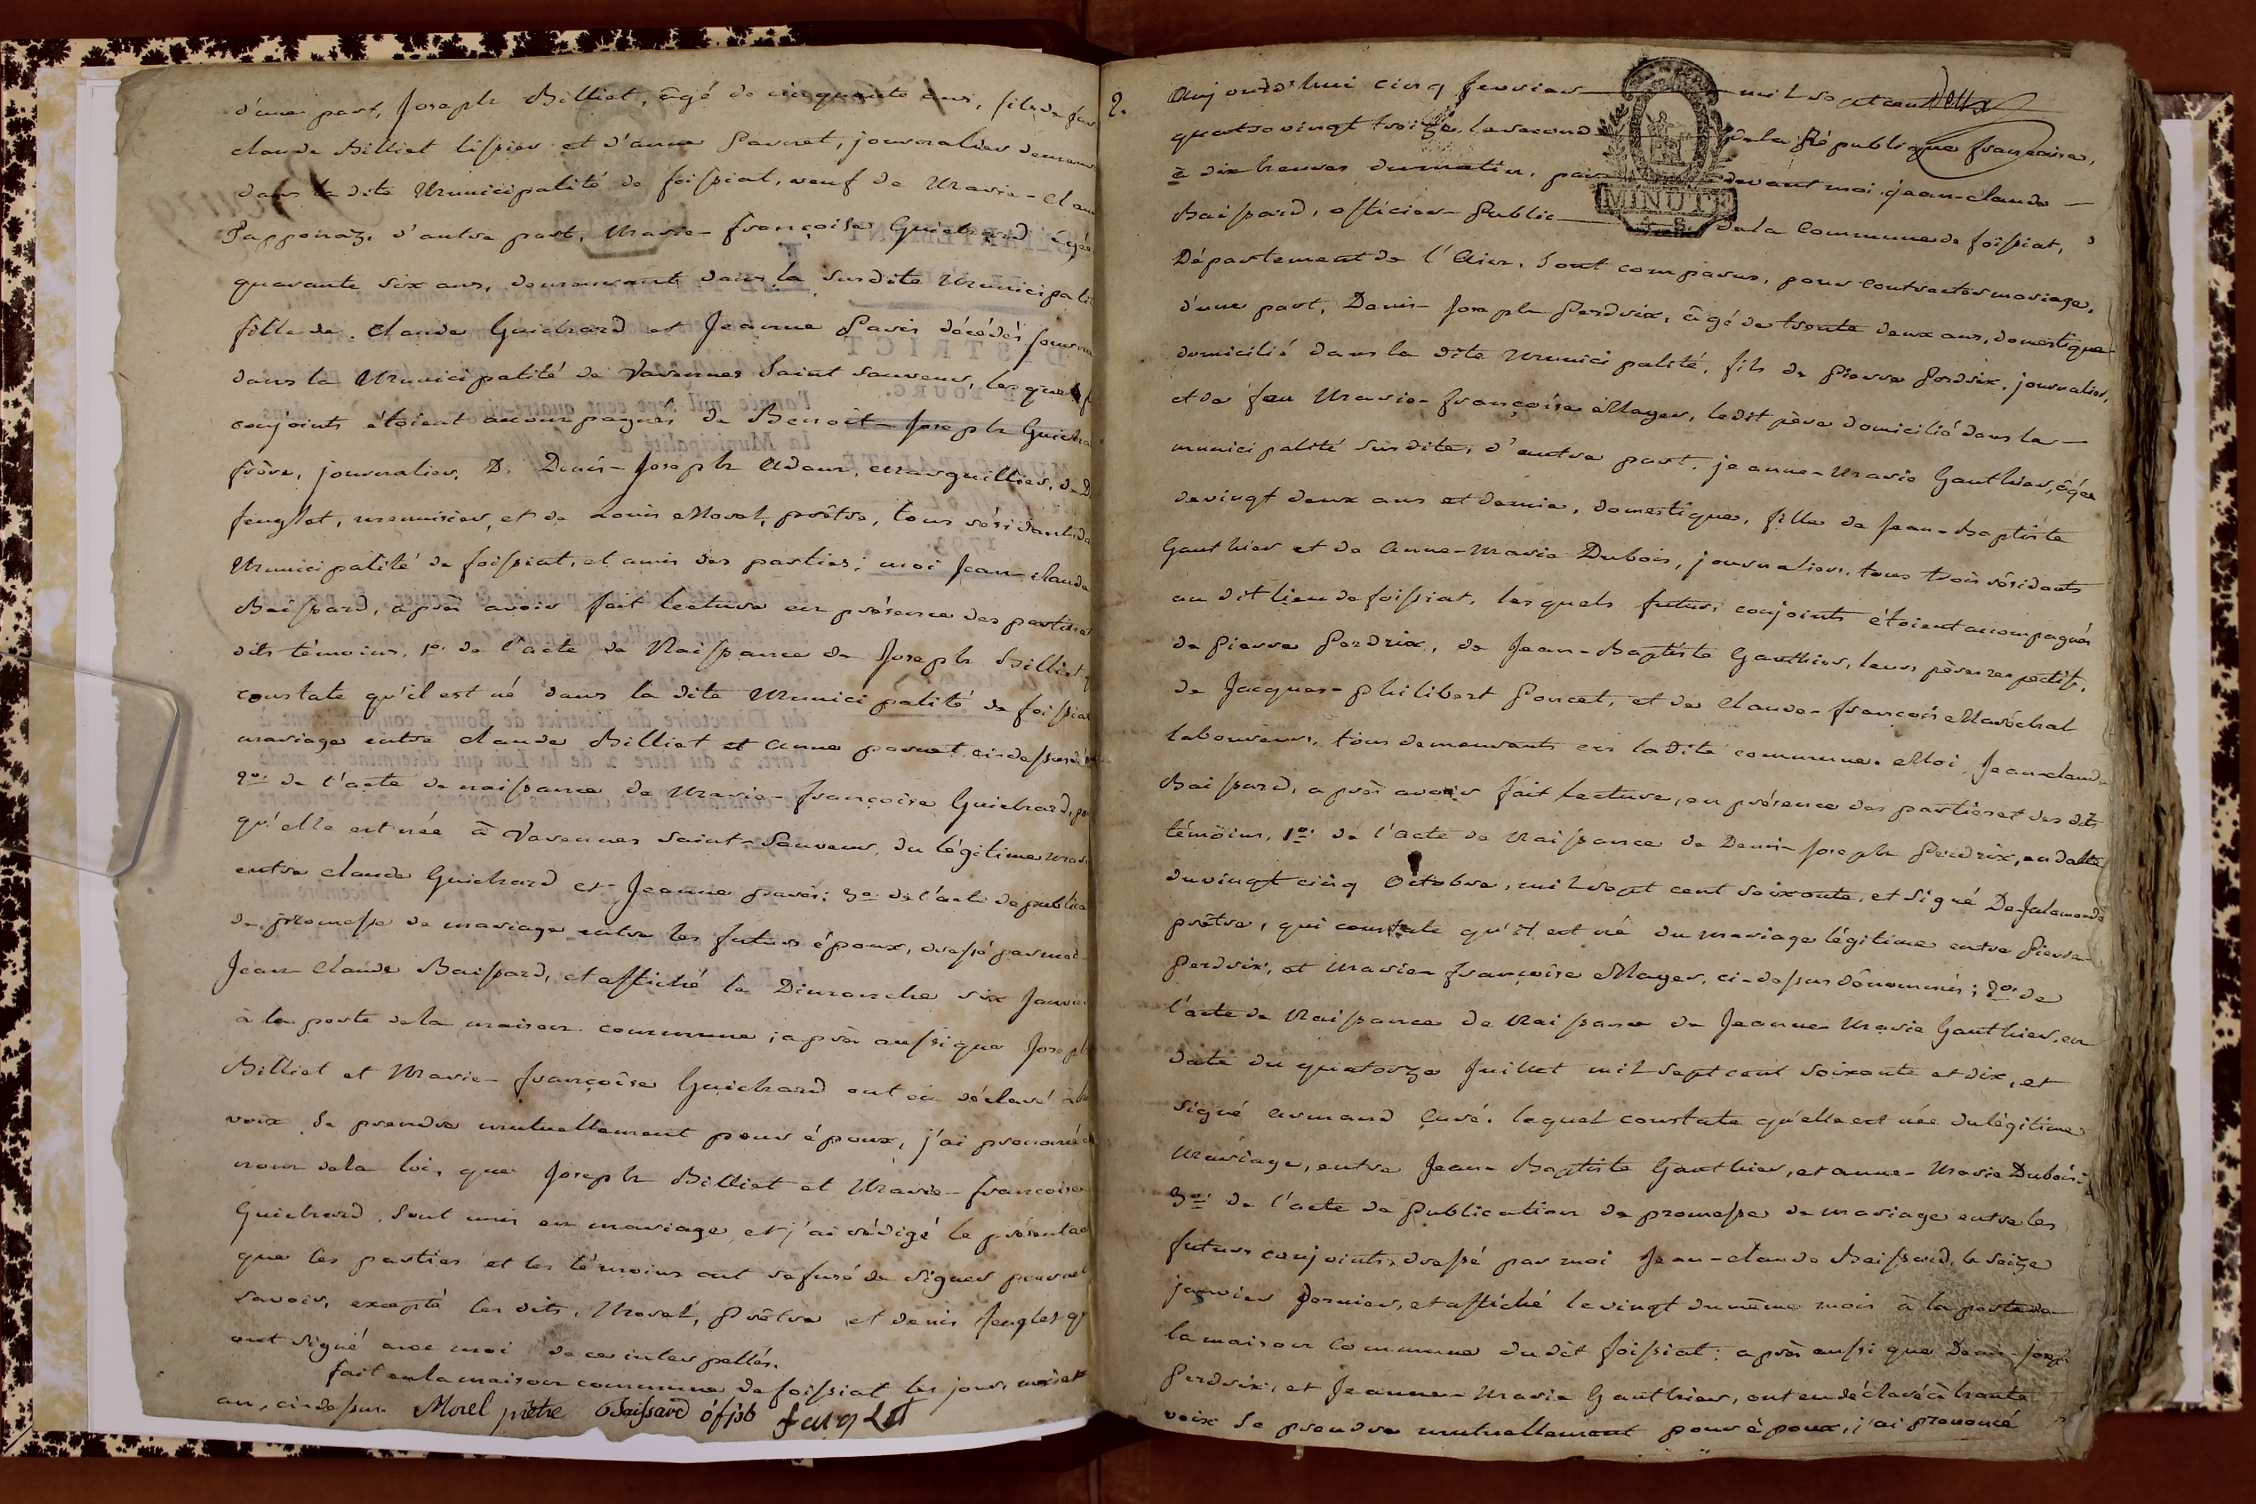 d'une part, Joseph Billiet, âgé de cinquante ans, fils de feu
claude Billiet tissier et d'anne Pavnet, journalier demeur
dans la dite Municipalité de foissiat, veuf de Marie-Clau
Papponaz. d'autre part, Marie-françoise Guichard âgée
quarante six ans, demeurant dans la susdite Municipali
fille de Claude Guichard et Jeanne Pavis décédés
dans la Municipalité de Varennes Saint Sauveur, lesquels f
conjoints étoient accompagnés de Benoit-Joseph Guicha
frère, journalier, D. Denis-Joseph Adam, marguillier, de D
fenglet, menuisier, et de Louis Morel, prêtre, tous résidants da
Municipalité de foissiat, et amis des parties; moi Jean-claude
Baissard, après avoir fait lecture en présence des parties et
dits témoins, 1º. de l'acte de Naissance de Joseph Billiet q
constate qu'il est né dans la dite Municipalité de foissiat
mariage entre claude Billiet et Anne pavnet ci-dessus dé
2º. de l'acte de naissance de Marie-françoise Guichard, po
qu'elle est née à Varennes Saint-Sauveur, du légitime mari
entre claude Guichard et Jeanne pavis; 3º de l'acte de publica
de promesse de mariage entre les futurs époux, dressé par moi
Jean Claude Baissard, et affiché le Dimanche six Janvie
à la porte de la maison commune; après aussi que Joseph
Billiet et Marie-françoise Guichard ont eu déclaré à ha
voix se prendre mutuellement pour époux, j'ai prononcé a
nom de la loi, que Joseph Billiet et Marie-françoise
Guichard, sont unis en mariage, et j'ai rédigé le présent ac
que les parties et les témoins ont refusé de signer pour ne
savoir, excepté les dits, Morel, Prêtre et denis fenglet q
ont signé avec moi de ce interpellés.
fait en la maison commune de foissiat les jour, mois et
an, ci-dessus. Morel prêtre Baissard off pb fenglet
2.
Aujourd'hui cinq fevrier mil sept cent
quatre vingt treize, le second de la République française,
à dix heures du matin, par devant moi jean-claude
Baissard, officier Public de la Commune de foissiat,
Département de l'Ain, sont comparus, pour contracter mariage,
d'une part, Denis-Joseph Perdrix, âgé de trente deux ans, domestique
domicilié dans la dite Municipalité, fils de Pierre Perdrix, journalier,
et de feu Marie-françoise Mayer, ledit père domicilié dans la
municipalité susdite; d'autre part, jeanne-Marie Gauthier, âgée
de vingt deux ans et demie, domestique, fille de Jean-Baptiste
Gauthier et de Anne-Marie Dubois, journaliers, tous trois résidants
au dit lieu de foissiat, lesquels futurs conjoints étoient accompagnés
de Pierre Perdrix, de Jean-Baptiste Gauthier, leurs pères respectifs,
de Jacques-Philibert Poncet, et de Claude-françois Maréchal
laboureurs, tous demeurants en ladite commune. Moi Jean-claude
Baissard, après avoir fait lecture, en présence des parties et des dits
témoins, 1º. de l'acte de Naissance de Denis-Joseph Perdrix, en datte
du vingt cinq Octobre, mil sept cent soixante, et signé De
prêtre, qui constate qu'il est né du mariage légitime entre Pierre
Perdrix, et Marie-françoise Mayer, ci-dessus dénommés; 2º. de
l'acte de Naissance de Naissance de Jeanne-Marie Gauthier, en
date du quatorze Juillet mil sept cent soixante et dix, et
signé armand Curé, lequel constate qu'elle est née du légitime
Mariage, entre Jean-Baptiste Gauthier, et anne-Marie Dubois;
3º. de l'acte de Publication de promesse de mariage entre les
futurs conjoints, dressé par moi Jean-claude Baissard, le seize
janvier dernier, et affiché le vingt du même mois à la porte de
la maison commune du dit foissiat; après aussi que Denis-Joseph
Perdrix, et Jeanne-Marie Gauthier, ont eu déclaré à haute
voix se prendre mutuellement pour époux, j'ai prononcé
MINUTE